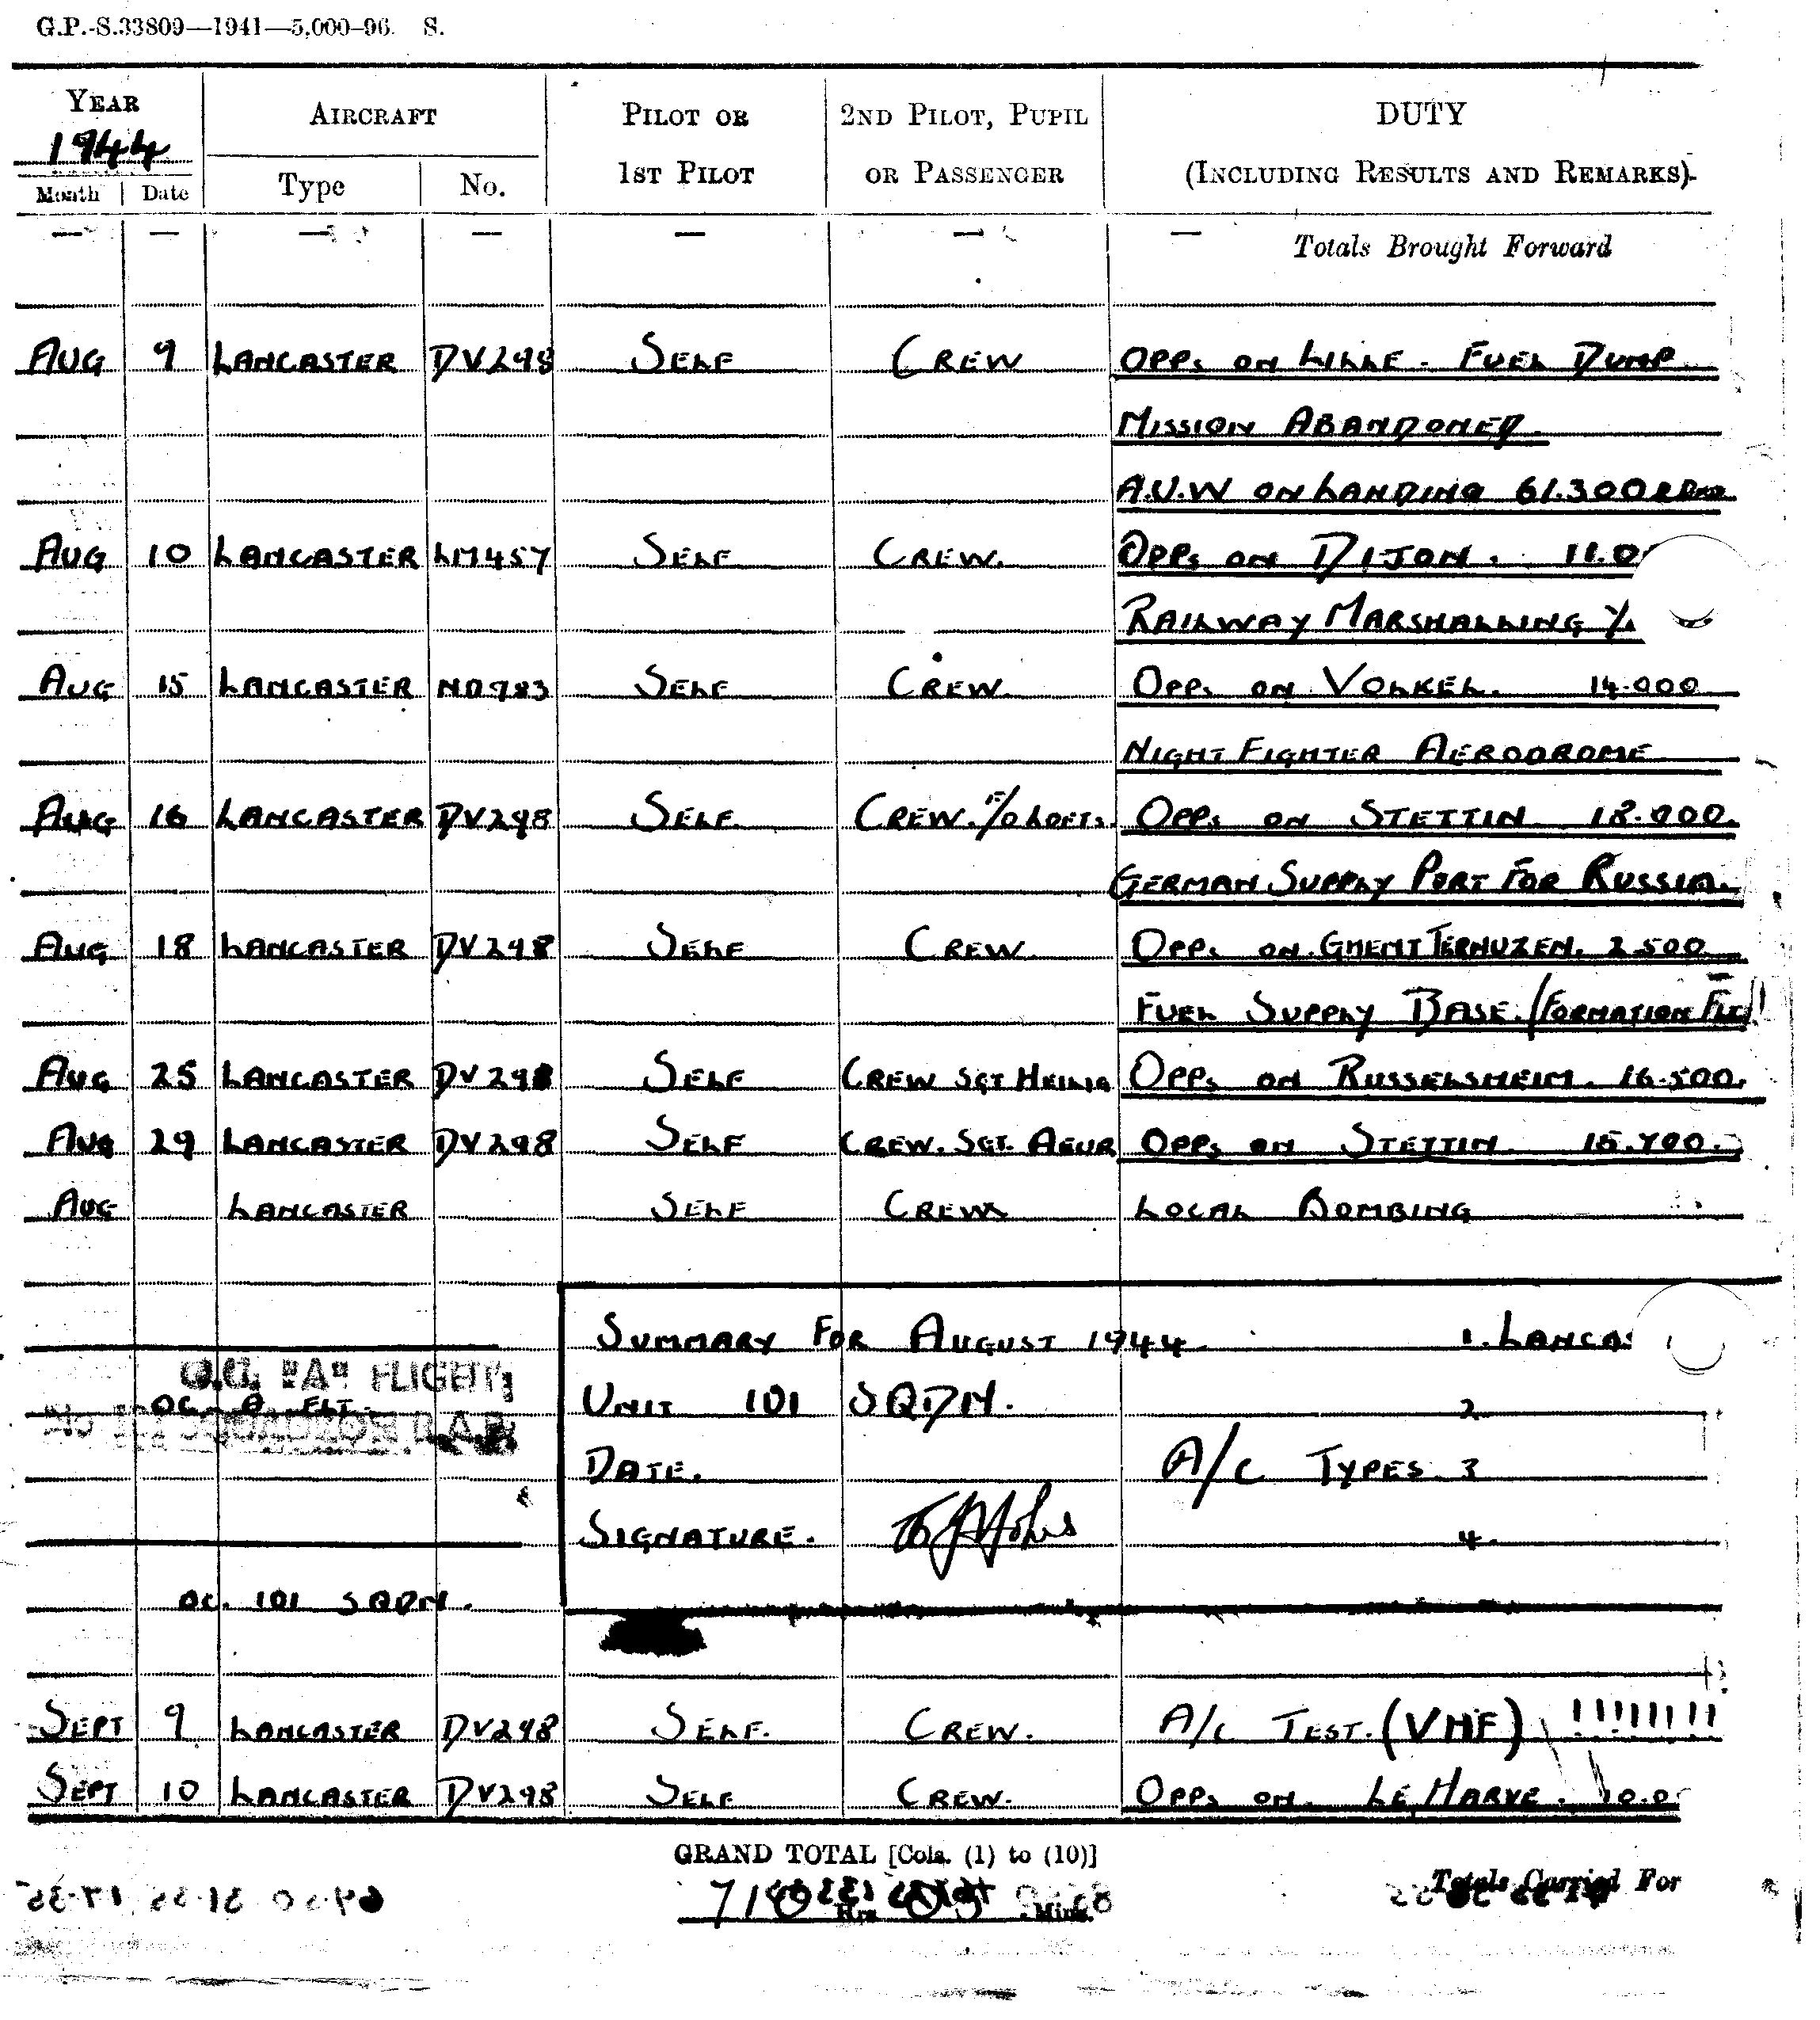 G.P.-S.33809—1941—5,000-96. S.
YEAR AIRCRAFT PILOT OR 2ND PILOT, PUPIL DUTY
1944
Month Date Type No. 1ST PILOT OR PASSENGER (INCLUDING RESULTS AND REMARKS).
— — — — — — — Totals Brought Forward
AUG 9 LANCASTER DV298 SELF CREW OPPS ON LILLE. FUEL DUMP
MISSION ABANDONED.
A.U.W ON LANDING 61.300
AUG 10 LANCASTER LM457 SELF CREW. OPPS ON DIJON. 11.0
RAILWAY MARSHALLING Y
AUG 15 LANCASTER ND983 SELF CREW. OPPS ON VOLKEL. 14.000
NIGHT FIGHTER AERODROME
AUG 16 LANCASTER DV298 SELF. CREW. F/O LOFTS. OPPS ON STETTIN 18.000.
GERMAN SUPPLY PORT FOR RUSSIA.
AUG 18 LANCASTER DV298 SELF CREW. OPPS ON GHENT TERNUZEN. 2.500
FUEL SUPPLY BASE. (FORMATION
AUG 25 LANCASTER DV298 SELF CREW SGT HEILIG OPPS ON RUSSELSHEIM. 16.500.
AUG 29 LANCASTER DV298 SELF CREW. SGT. OPPS ON STETTIN 15.700.
AUG LANCASTER SELF CREW LOCAL BOMBING
SUMMARY FOR AUGUST 1944. 1. LANCAS
O.C. "A" FLIGHT
OC. A FLT. UNIT 101 SQDN. 2.
No 101 SQUADRON R.A.F.
DATE. A/C TYPES. 3
SIGNATURE. 4.
OC. 101 SQDN.
SEPT 9 LANCASTER DV298 SELF. CREW. A/C TEST. (VHF) !!!!!!!!
SEPT 10 LANCASTER DV298 SELF CREW. OPPS ON. LE HARVE. 10.0
GRAND TOTAL [Cols. (1) to (10)]
Totals Carried For
Hrs. Mins.